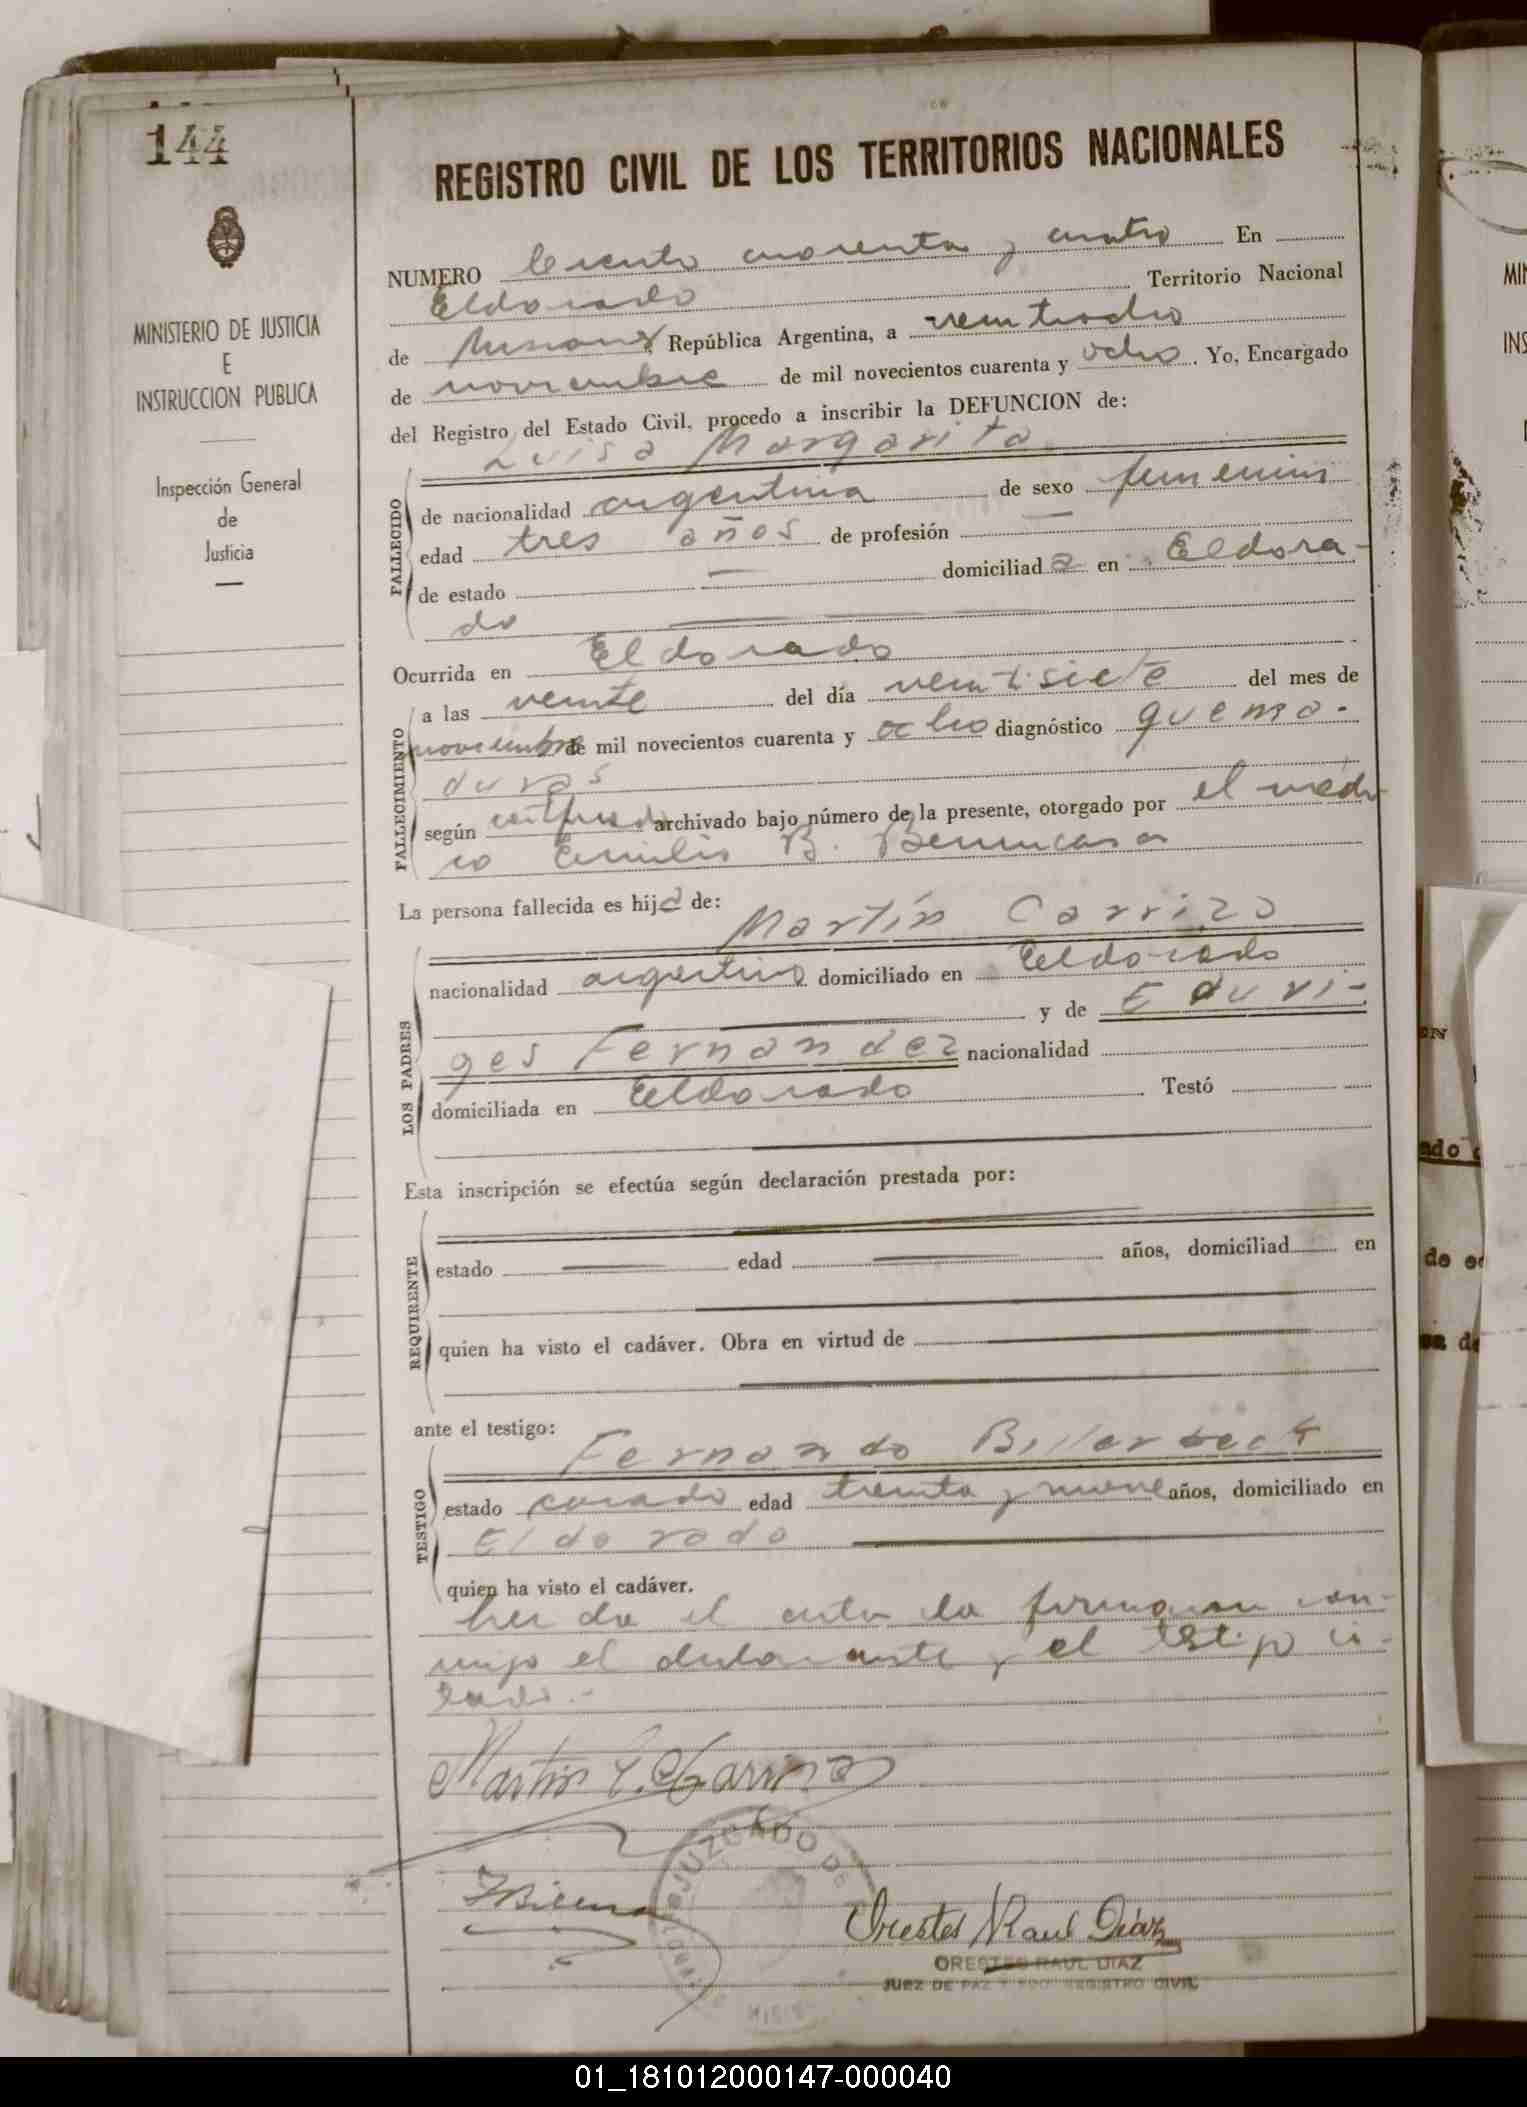 144
REGISTRO CIVIL DE LOS TERRITORIOS NACIONALES
MINISTERIO DE JUSTICIA
E
INSTRUCCION PUBLICA
Inspección General
de
Justicia
NUMERO Ciento cuarenta y cuatro En
Eldorado Territorio Nacional
de Misiones República Argentina, a veintiocho
de noviembre de mil novecientos cuarenta y ocho. Yo, Encargado
del Registro del Estado Civil, procedo a inscribir la DEFUNCION de:
Luisa Margarita
FALLECIDO
de nacionalidad argentina de sexo femenino
edad tres años de profesión —
de estado — domiciliada en Eldora-
do
Ocurrida en Eldorado
FALLECIMIENTO
a las veinte del día veintisiete del mes de
noviembre de mil novecientos cuarenta y ocho diagnóstico quema-
duras
según certificado archivado bajo número de la presente, otorgado por el médi
co Emilio B.
La persona fallecida es hija de:
Martín Carrizo
LOS PADRES
nacionalidad argentino domiciliado en Eldorado
y de Eduvi-
ges Fernandez nacionalidad
domiciliada en Eldorado Testó
Esta inscripción se efectúa según declaración prestada por:
REQUIRENTE
estado edad años, domiciliad en
quien ha visto el cadáver. Obra en virtud de
ante el testigo:
Fernando Billerbeck
TESTIGO
estado casado edad treinta y nueve años, domiciliado en
Eldorado
quien ha visto el cadáver.
Leida el acta la firmaron con-
migo el declarante y el testigo ci-
tado.-
Martin C. Carrizo
JUZGADO DE
Orestes Raul Diaz
ORESTES RAUL DIAZ
JUEZ DE PAZ Y REGISTRO CIVIL
MIN
INS
01_181012000147-000040